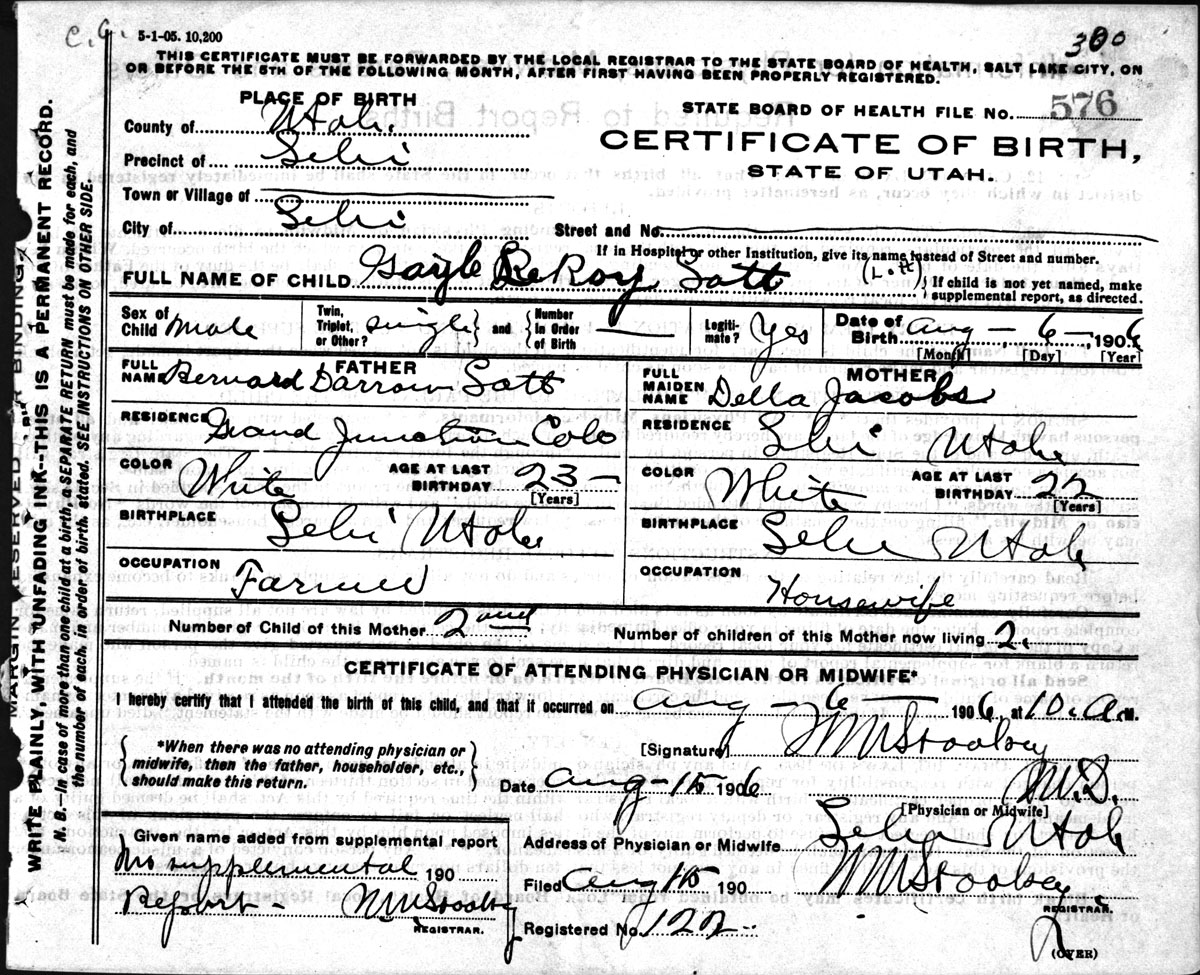 C.A.
5-1-05. 10,200
300
THIS CERTIFICATE MUST BE FORWARDED BY THE LOCAL REGISTRAR TO THE STATE BOARD OF HEALTH, SALT LAKE CITY, ON
OR BEFORE THE 5TH OF THE FOLLOWING MONTH, AFTER FIRST HAVING BEEN PROPERLY REGISTERED.
PLACE OF BIRTH
STATE BOARD OF HEALTH FILE NO. 576
County of Utah.
CERTIFICATE OF BIRTH,
Precinct of Lehi
STATE OF UTAH.
Town or Village of
City of Lehi
Street and No.
If in Hospital or other Institution, give its name instead of Street and number.
FULL NAME OF CHILD Gayle LeRoy Lott (Lott) { If child is not yet named, make supplemental report, as directed.
Sex of Child Male Twin, Triplet, or Other? single and { Number in Order of Birth Legiti-mate? Yes Date of Birth Aug - 6 - 1906
[Month] [Day] [Year]
FATHER
FULL NAME Bernard Darrow Lott
RESIDENCE Grand Junction Colo
COLOR White AGE AT LAST BIRTHDAY 23 -
[Years]
BIRTHPLACE Lehi Utah
OCCUPATION Farmer
MOTHER
FULL MAIDEN NAME Della Jacobs
RESIDENCE Lehi Utah
COLOR White AGE AT LAST BIRTHDAY 22
[Years]
BIRTHPLACE Lehi Utah
OCCUPATION Housewife
Number of Child of this Mother 2nd Number of children of this Mother now living 2.
CERTIFICATE OF ATTENDING PHYSICIAN OR MIDWIFE*
I hereby certify that I attended the birth of this child, and that it occurred on Aug - 6 - 1906, at 10. a. M.
{ *When there was no attending physician or midwife, then the father, householder, etc., should make this return. }
[Signature]
Date Aug - 15 1906
M.D.
[Physician or Midwife]
Given name added from supplemental report
No supplemental 190
Report -
REGISTRAR.
Address of Physician or Midwife Lehi Utah
Filed Aug 15 190
REGISTRAR.
Registered No. 122 -
(OVER)
MARGIN RESERVED FOR BINDING
WRITE PLAINLY, WITH UNFADING INK--THIS IS A PERMANENT RECORD.
N. B.--In case of more than one child at a birth, a SEPARATE RETURN must be made for each, and
the number of each, in order of birth, stated. SEE INSTRUCTIONS ON OTHER SIDE.